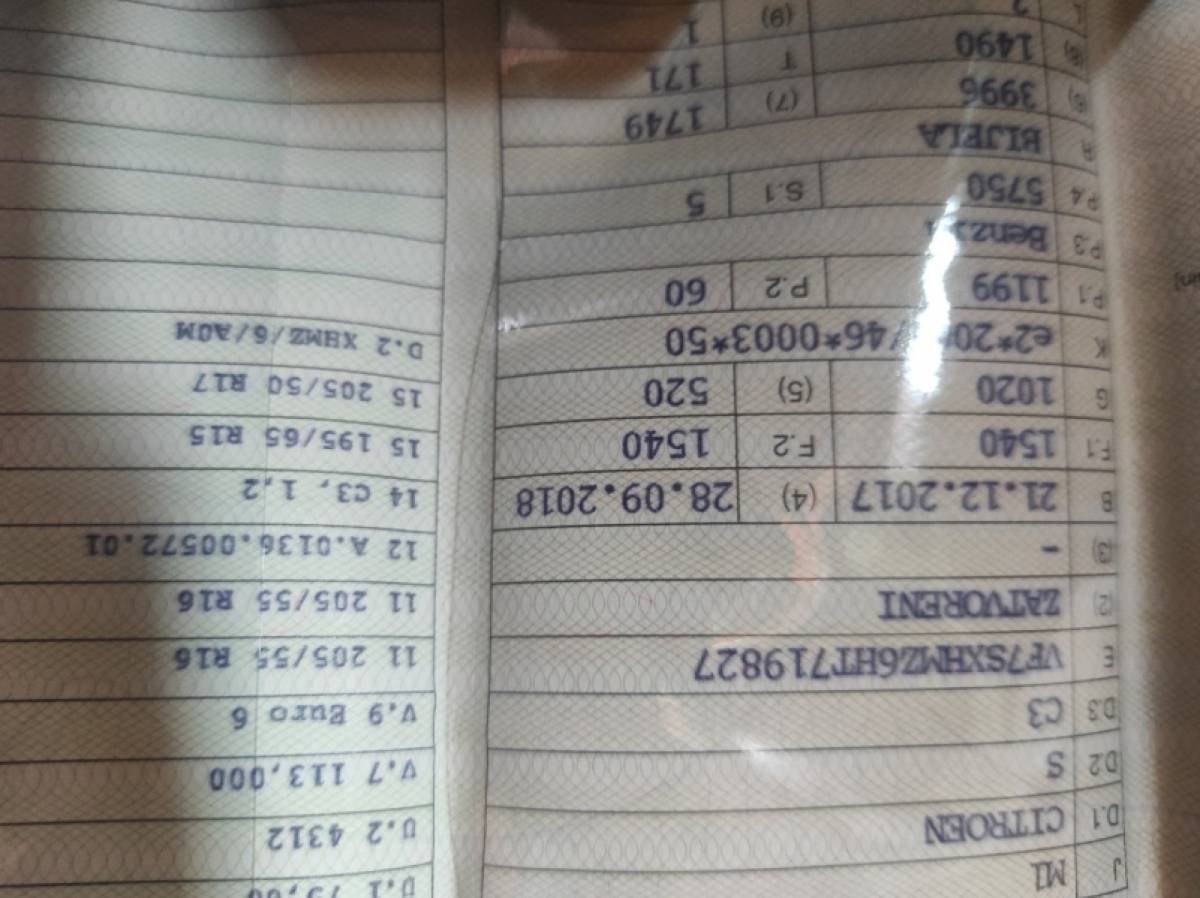 J M1
D.1 CITROEN
D.2 S
D.3 C3
E VF7SXHMZ6HT719827
(2) ZATVORENI
(3) -
B 21.12.2017 (4) 28.09.2018
F.1 1540 F.2 1540
G 1020 (5) 520
K /46*0003*50
P.1 1199 P.2 60
P.3
P.4 5750 S.1 5
R BIJELA
(6) 3996 (7) 1749
(8) 1490 T 171
L (9) 1
U.1
U.2 4312
V.7 113,000
V.9 Euro 6
11 205/55 R16
11 205/55 R16
12 A.0136.00572.01
14 C3, 1,2
15 195/65 R15
15 205/50 R17
D.2 XHMZ/6/A0M